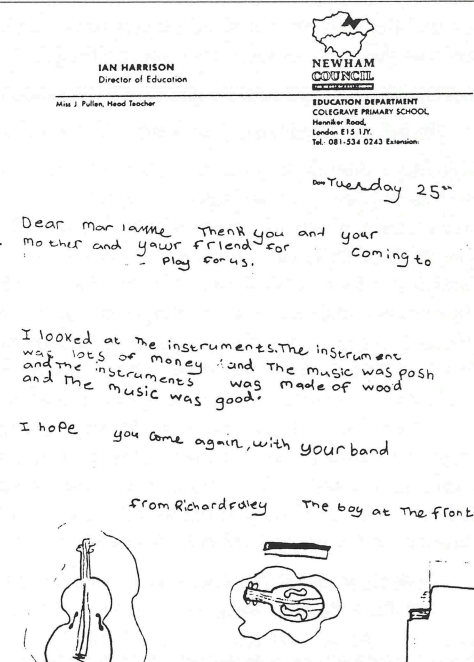 IAN HARRISON
Director of Education
NEWHAM
COUNCIL
Miss J. Pullen, Head Teacher
EDUCATION DEPARTMENT
COLEGRAVE PRIMARY SCHOOL,
Henniker Road,
London E15 1JY.
Tel: 081-534 0243 Extension:
Date Tuesday 25th
Dear marianne Thenk you and your
mother and yawr friend for coming to
Play for us.
I looked at the instruments. The instrument
was lots of money and The music was posh
and The instruments was made of wood
and The music was good.
I hope you come again, with your band
from Richard The boy at The front